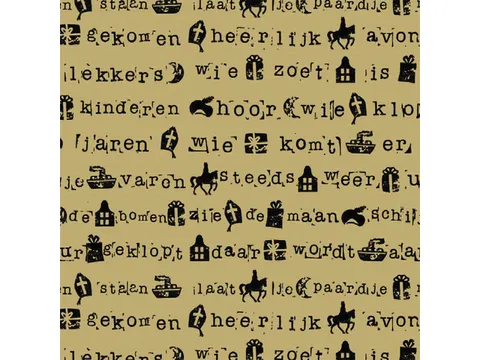 en staan laat je paardje
gekomen heerlijk avon
lekkers wie zoet is
kinderen hoor wie klo
jaren wie komt er
je varen steeds weer u
de bomen zie de maan schi
ur geklopt daar wordt aa
en staan laat je paardje
gekomen heerlijk avon
lekkers wie zoet is